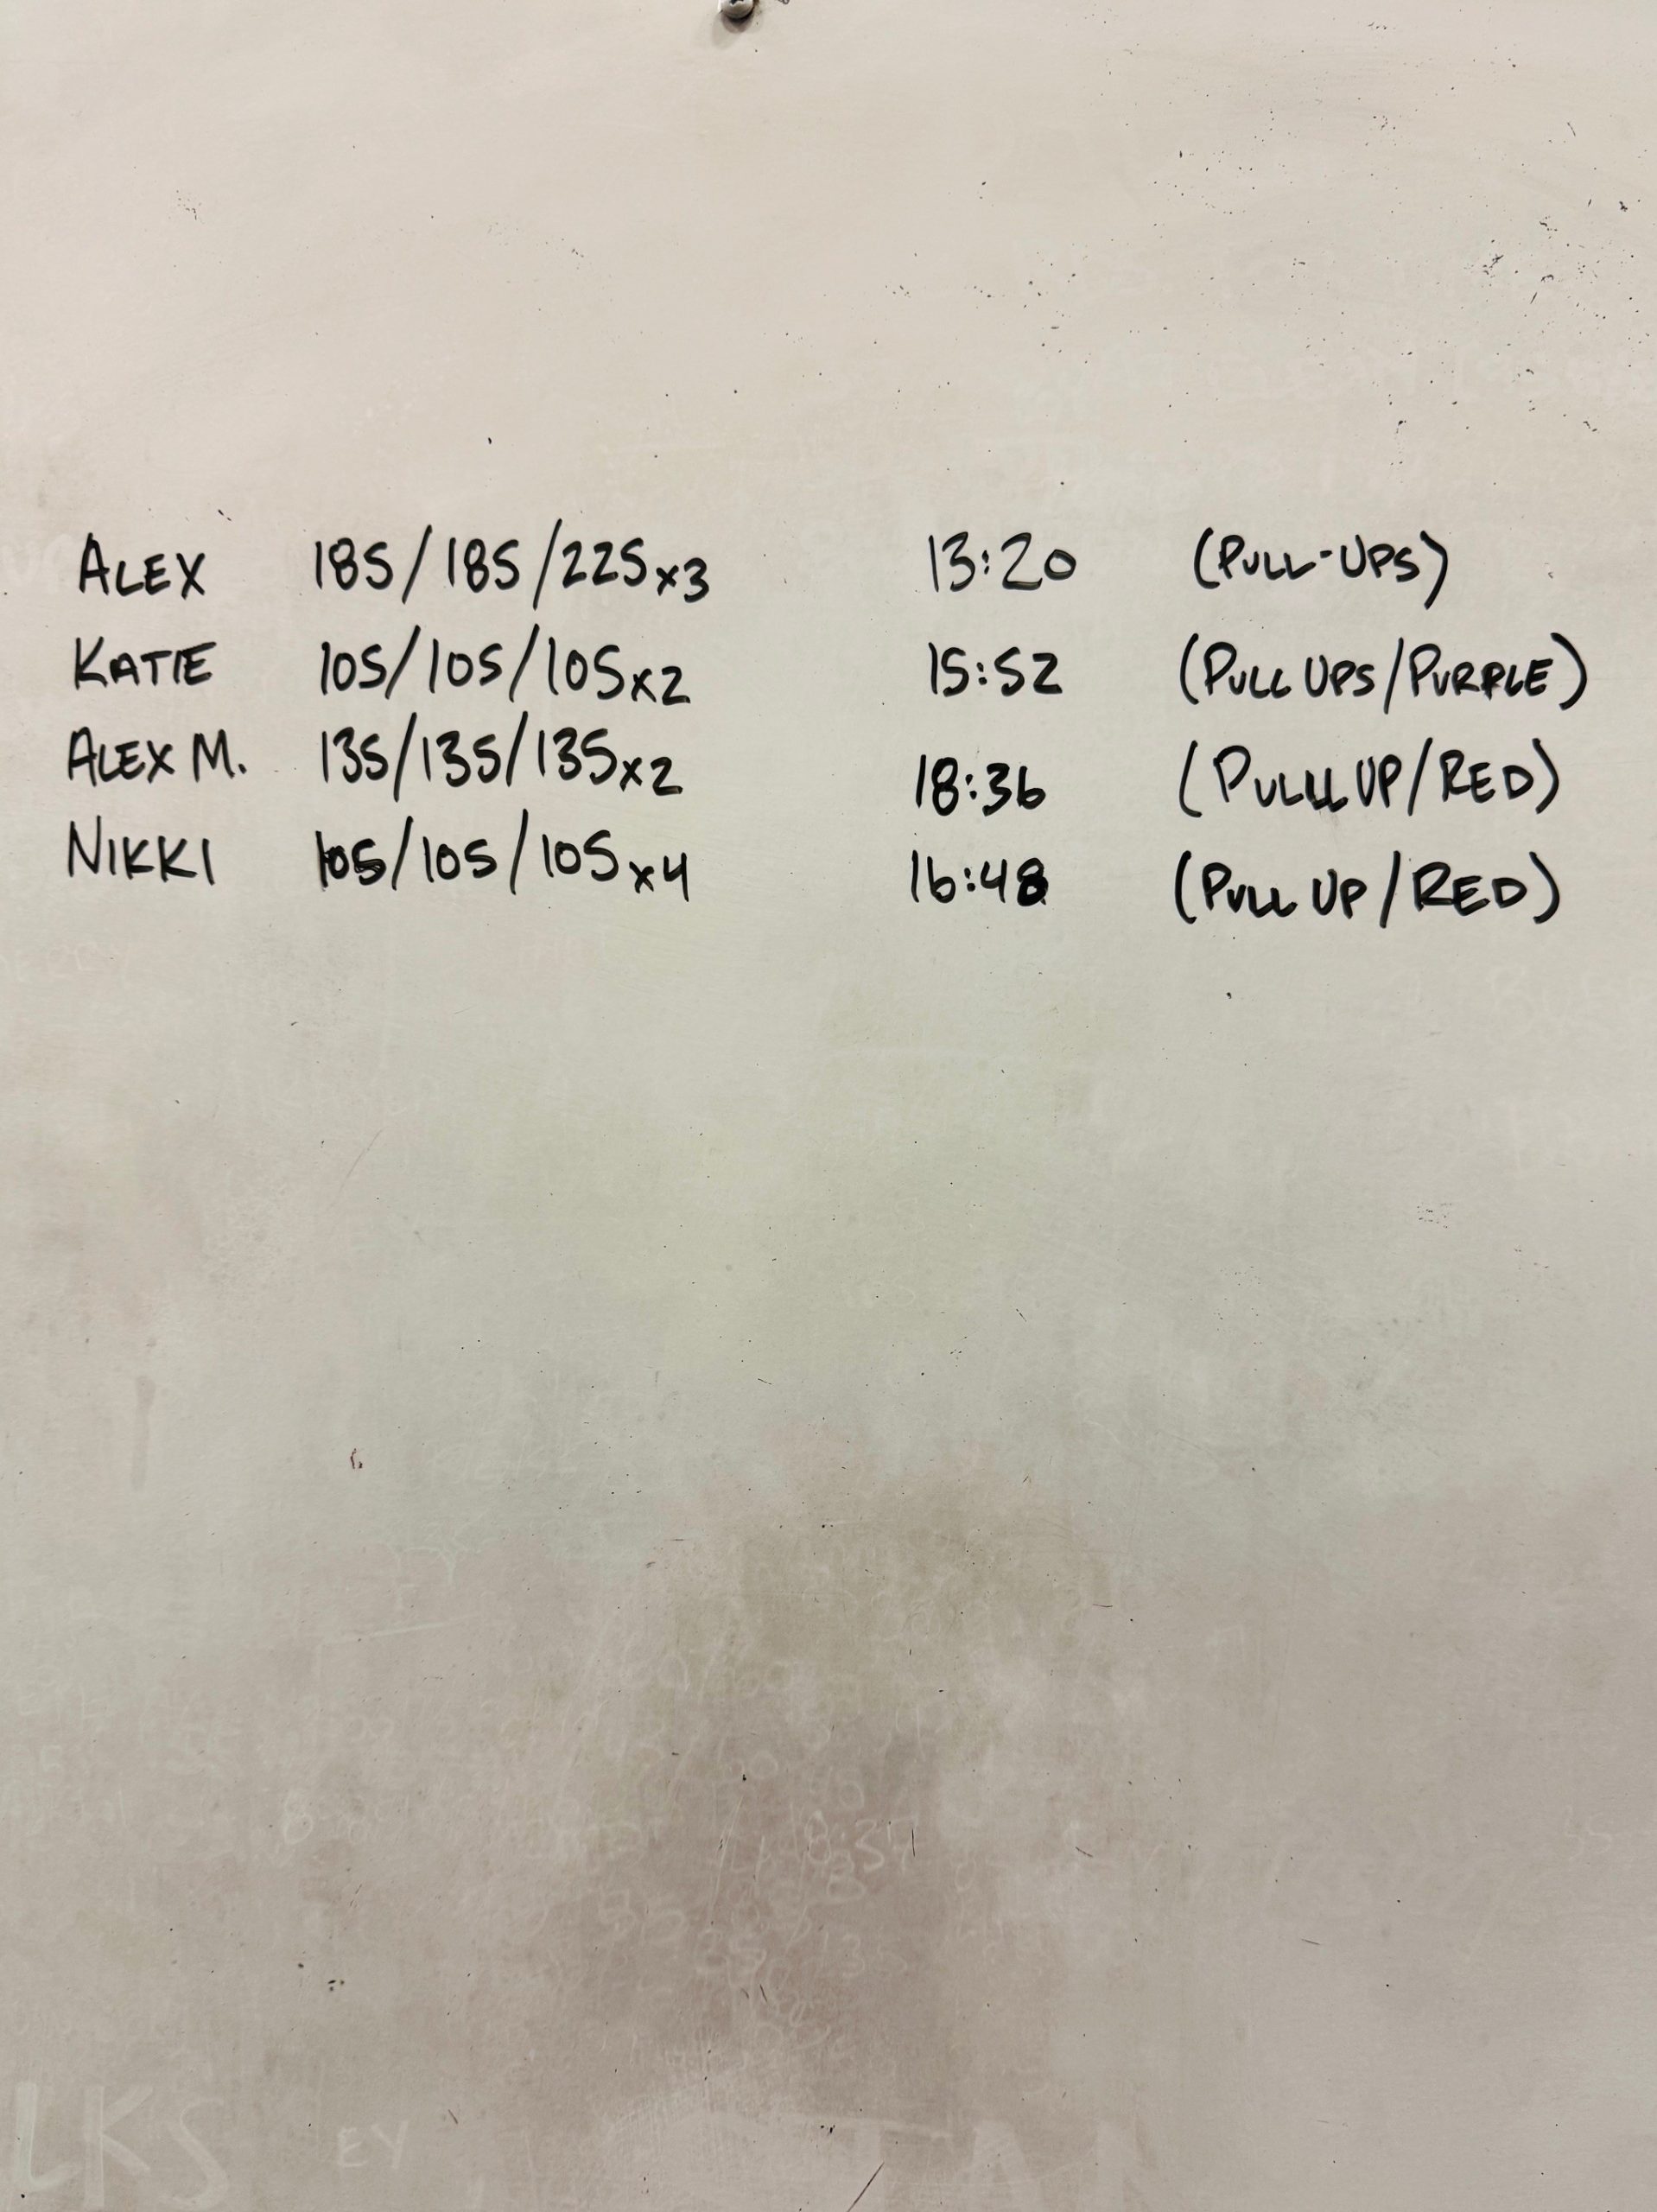 ALEX 185/185/225x3 13:20 (PULL-UPS)
KATIE 105/105/105x2 15:52 (PULL UPS/PURPLE)
ALEX M. 135/135/135x2 18:36 (PULLL UP/RED)
NIKKI 105/105/105x4 16:48 (PULL UP/RED)
LKS EY